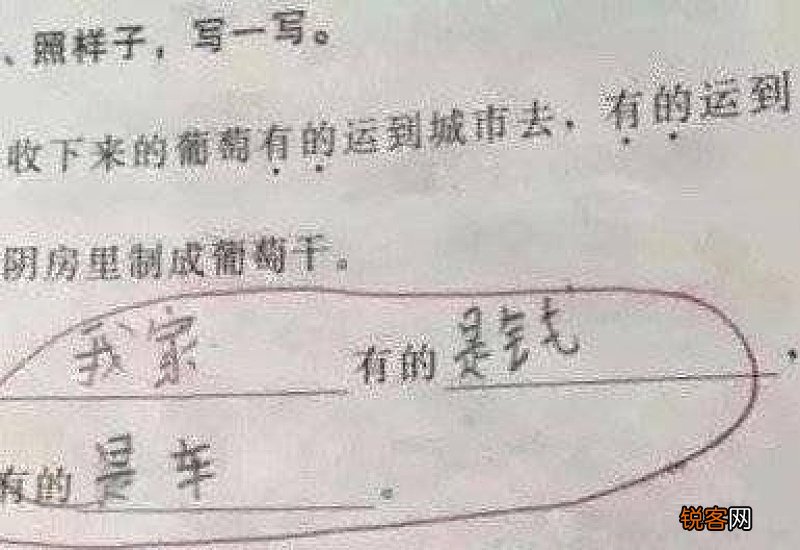 、照样子，写一写。
收下来的葡萄有的运到城市去，有的运到
阴房里制成葡萄干。
我家有的是钱，
有的是车。
锐客网